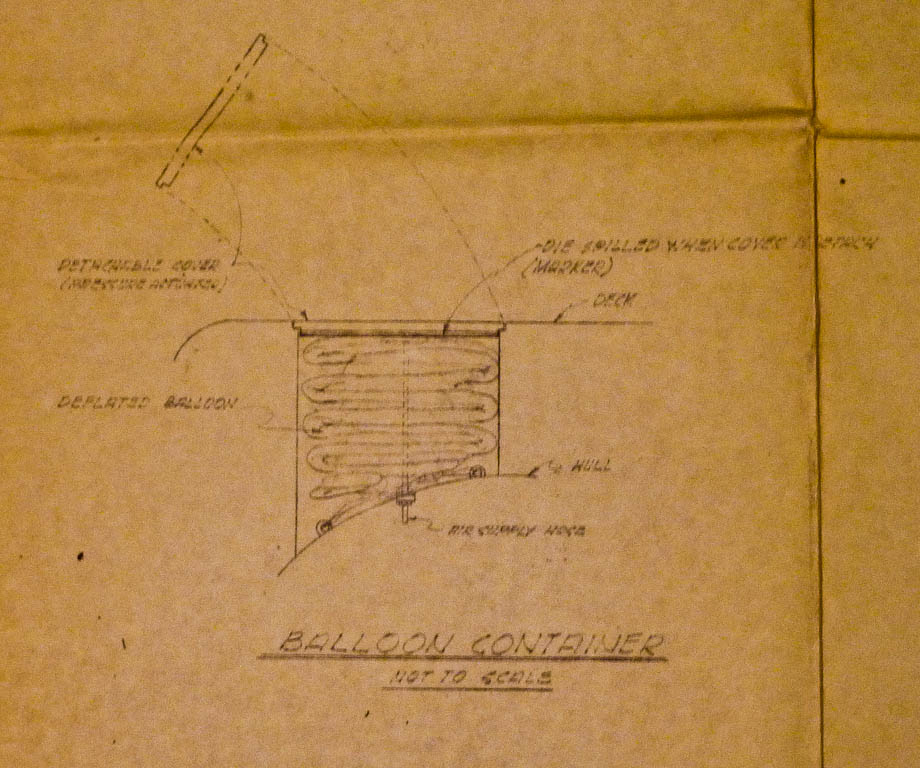 DIE SPILLED WHEN COVER IS DETACH
(MARKER)
DETACHABLE COVER
(PRESSURE ACTUATED)
DECK
DEFLATED BALLOON
HULL
AIR SUPPLY HOSE
BALLOON CONTAINER
NOT TO SCALE